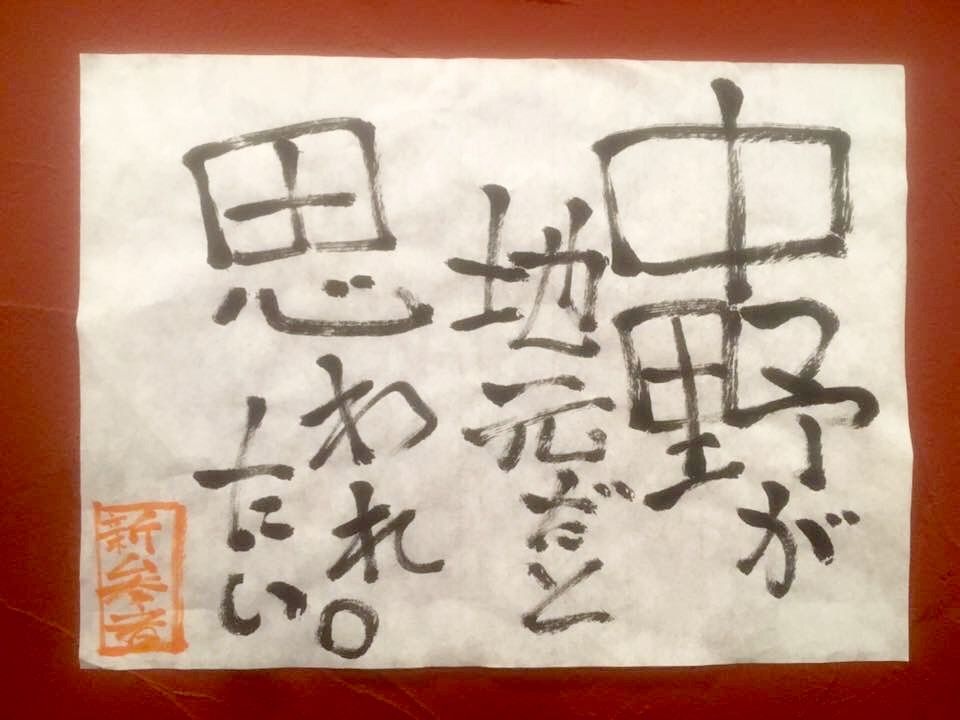 中野が
地元だと
思われ
たい。
新参者